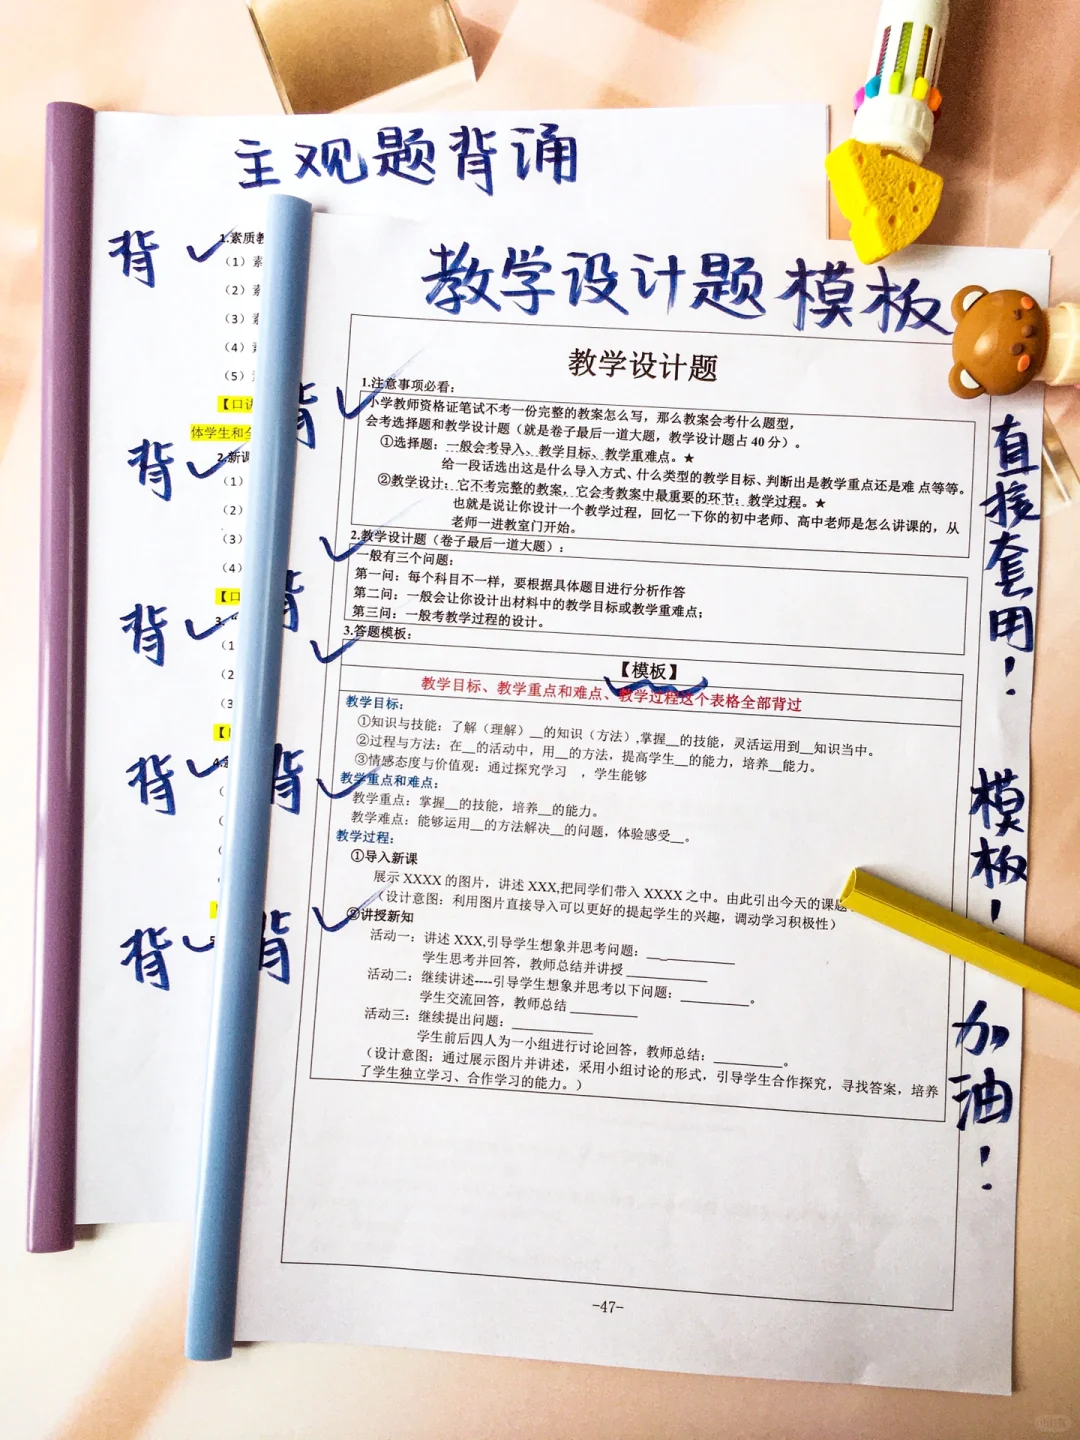 主观题背诵
背
1.素质教
（1）素
（2）
（3）
（4）
（5）
【口诀
体学生和全
背
2.新课
（1）
（2）
（3）
（4）
【口
背
3.
（1
（2
（3
背
4.
背
5
教学设计题模板
背
背
背
背
教学设计题
1.注意事项必看：
小学教师资格证笔试不考一份完整的教案怎么写，那么教案会考什么题型，
会考选择题和教学设计题（就是卷子最后一道大题，教学设计题占 40 分）。
①选择题：一般会考导入、教学目标、教学重难点。★
给一段话选出这是什么导入方式、什么类型的教学目标、判断出是教学重点还是难 点等等。
②教学设计：它不考完整的教案，它会考教案中最重要的环节：教学过程。★
也就是说让你设计一个教学过程，回忆一下你的初中老师、高中老师是怎么讲课的，从
老师一进教室门开始。
2.教学设计题（卷子最后一道大题）：
一般有三个问题：
第一问：每个科目不一样，要根据具体题目进行分析作答
第二问：一般会让你设计出材料中的教学目标或教学重难点；
第三问：一般考教学过程的设计。
3.答题模板：
【模板】
教学目标、教学重点和难点、教学过程这个表格全部背过
教学目标：
①知识与技能：了解（理解）__的知识（方法）,掌握__的技能，灵活运用到__知识当中。
②过程与方法：在__的活动中，用__的方法，提高学生__的能力，培养__能力。
③情感态度与价值观：通过探究学习　，学生能够
教学重点和难点：
教学重点：掌握__的技能，培养__的能力。
教学难点：能够运用__的方法解决__的问题，体验感受__。
教学过程：
①导入新课
展示 XXXX 的图片，讲述 XXX,把同学们带入 XXXX 之中。由此引出今天的课题
（设计意图：利用图片直接导入可以更好的提起学生的兴趣，调动学习积极性）
②讲授新知
活动一：讲述 XXX,引导学生想象并思考问题：____________
学生思考并回答，教师总结并讲授 ____________
活动二：继续讲述----引导学生想象并思考以下问题：__________。
学生交流回答，教师总结 __________
活动三：继续提出问题：____________
学生前后四人为一小组进行讨论回答，教师总结：__________。
（设计意图：通过展示图片并讲述，采用小组讨论的形式，引导学生合作探究，寻找答案，培养
了学生独立学习、合作学习的能力。）
-47-
直接套用！
模板！
加油！